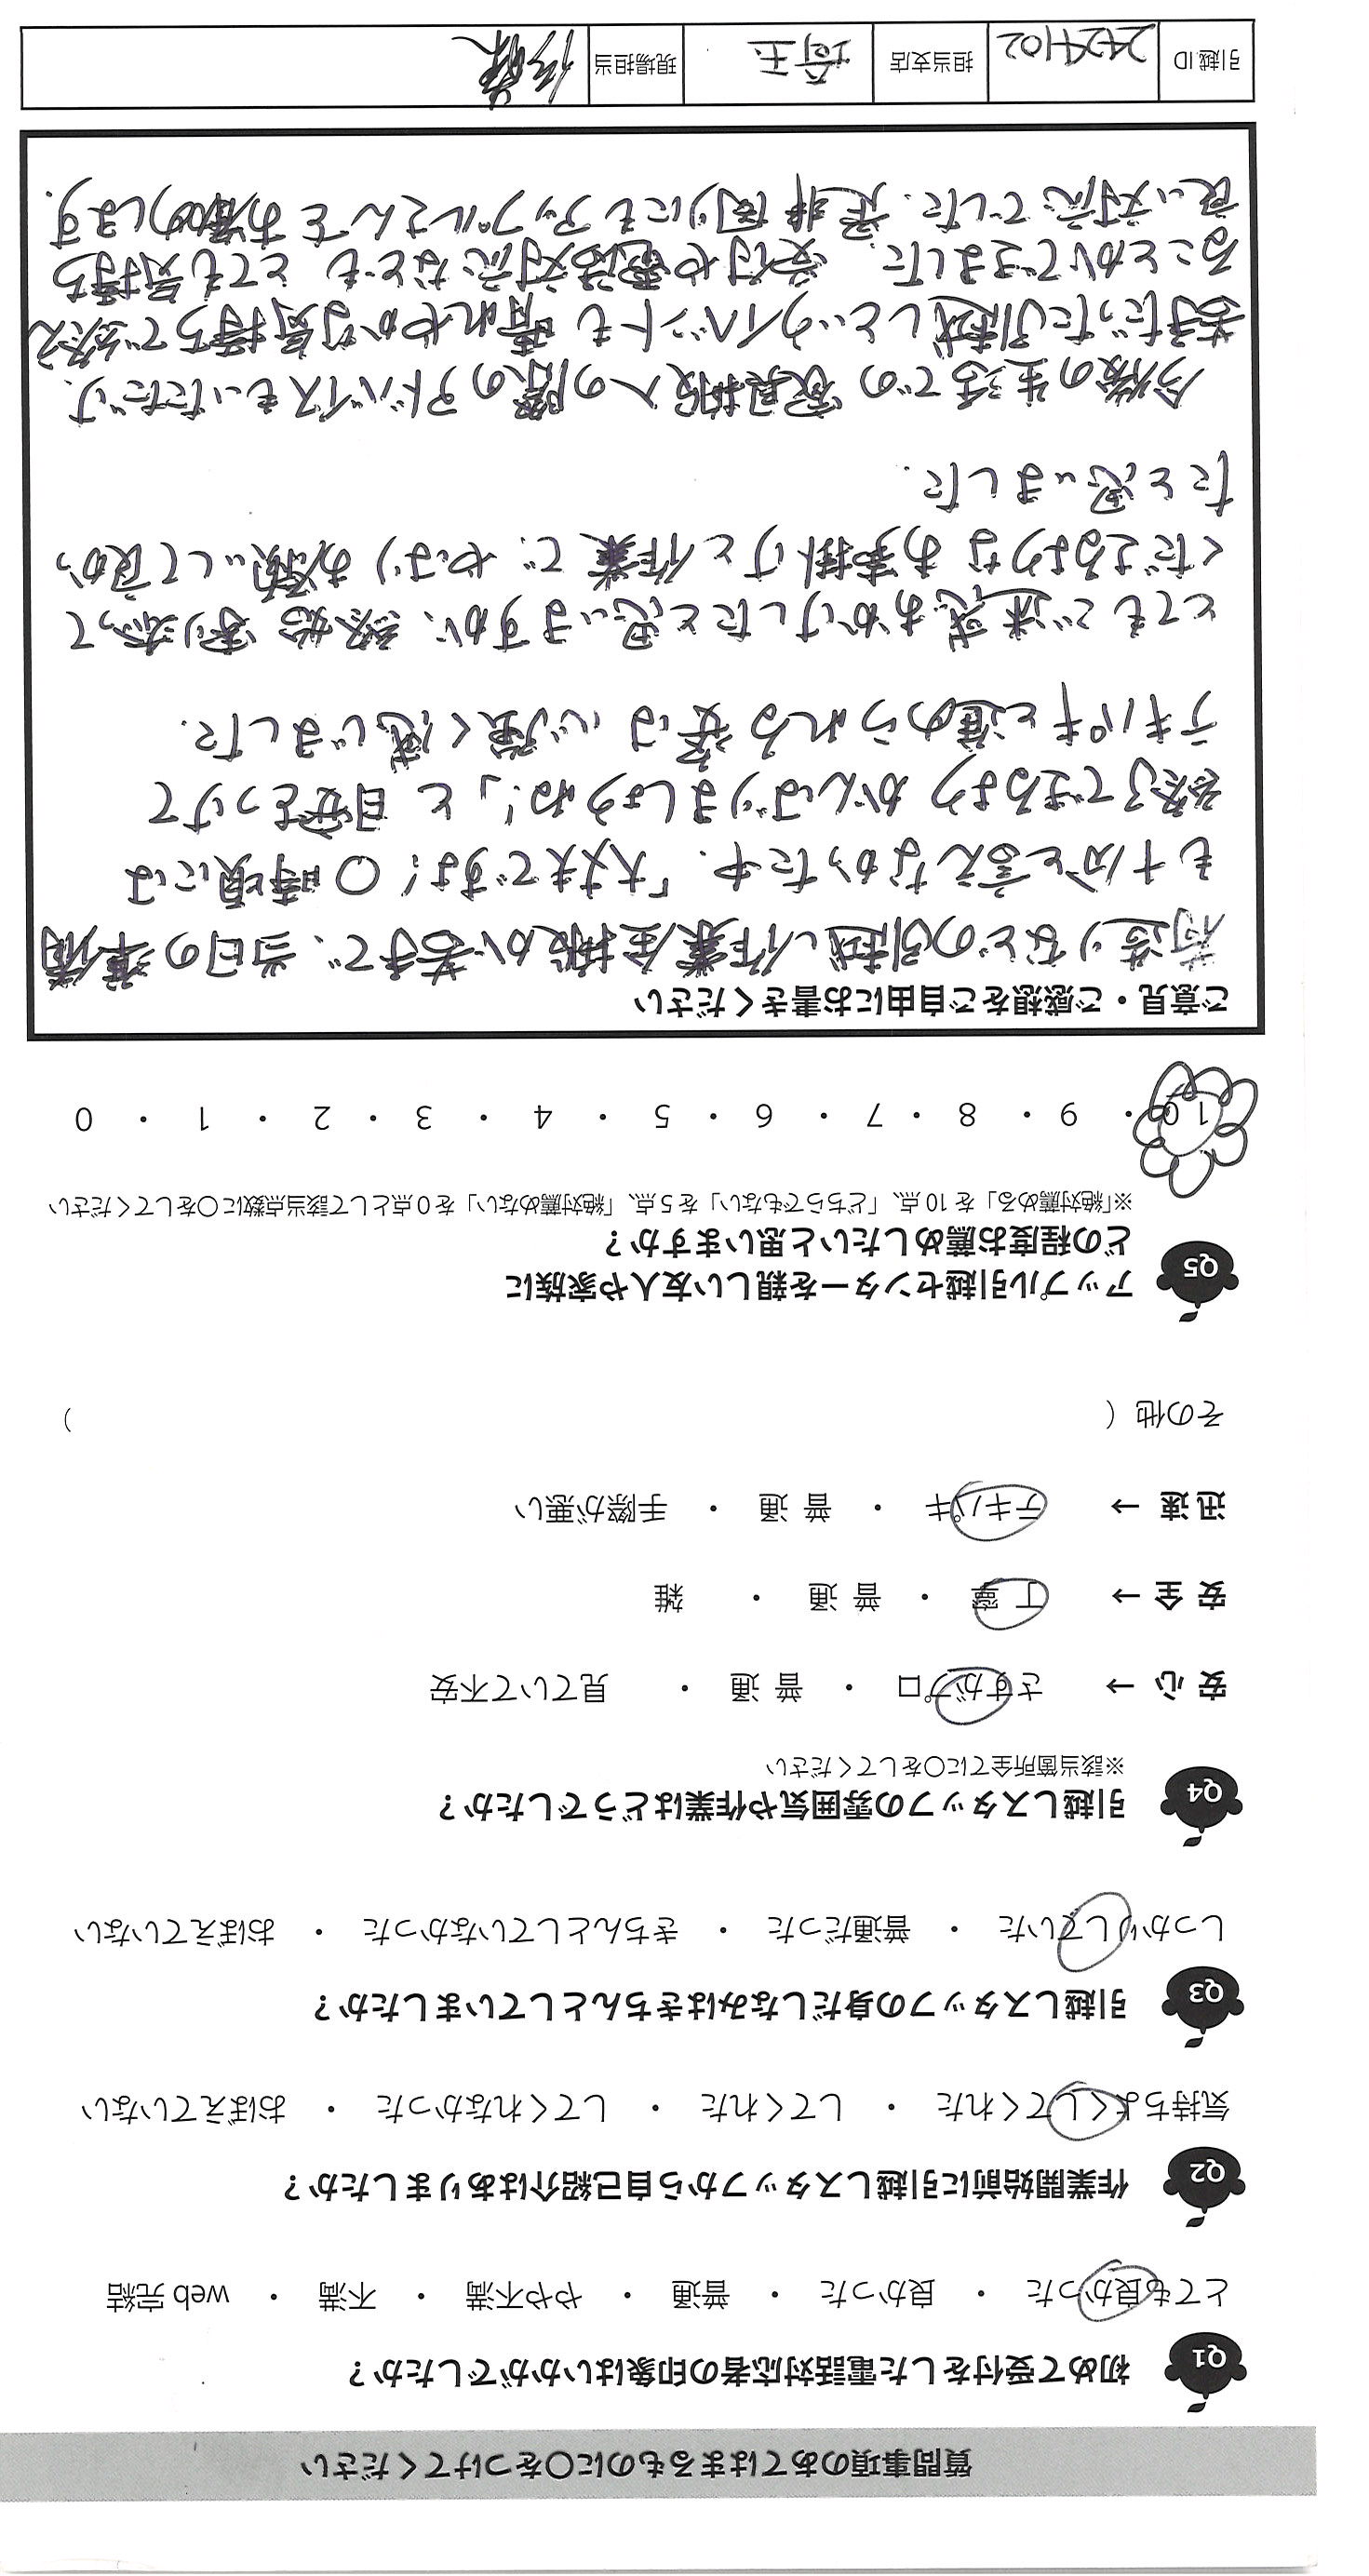 質問事項のあてはまるものに○をつけてください
Q1 初めて受付をした電話対応者の印象はいかがでしたか？
とても良かった ・ 良かった ・ 普通 ・ やや不満 ・ 不満 ・ web 完結
Q2 作業開始前に引越しスタッフから自己紹介はありましたか？
気持ちよくしてくれた ・ してくれた ・ してくれなかった ・ おぼえていない
Q3 引越しスタッフの身だしなみはきちんとしていましたか？
しっかりしていた ・ 普通だった ・ きちんとしていなかった ・ おぼえていない
Q4 引越しスタッフの雰囲気や作業はどうでしたか？
※該当箇所全てに○をしてください
安 心 → さすがプロ ・ 普 通 ・ 見ていて不安
安 全 → 丁 寧 ・ 普 通 ・ 雑
迅 速 → テキパキ ・ 普 通 ・ 手際が悪い
その他（ ）
Q5 アップル引越センターを親しい友人や家族に
どの程度お薦めしたいと思いますか？
※「絶対薦める」を 10 点、「どちらでもない」を 5 点、「絶対薦めない」を 0 点として該当点数に○をしてください
10 ・ 9 ・ 8 ・ 7 ・ 6 ・ 5 ・ 4 ・ 3 ・ 2 ・ 1 ・ 0
ご意見・ご感想をご自由にお書きください
荷造りなどの引越し作業全般が苦手で、当日の準備
も十分と言えなかった中、「大丈夫ですよ！○時頃には
終了できるようがんばりましょうね！」と目安をつけて
テキパキと進められる姿は心強く感じました。
とてもご迷惑おかけしたと思いますが、終始寄り添って
くださるようなお声掛けと作業で、やはりお願いして良かっ
たと思いました。
今後の生活での家具搬入の際のアドバイスもいただけ、
苦手だった引越しというイベントも晴れやかな気持ちで終え
ることができました。受付や電話対応なども、とても気持ち
良い対応でした。是非周りにもアップルさんをお薦めします。
引越 ID 2424102 担当支店 埼玉 現場担当